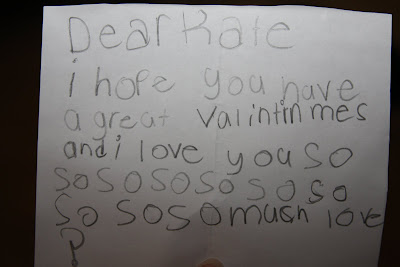 Dear Kate
i hope you have
a great valintinmes
and i love you so
so so so so so so
so so so much love
P